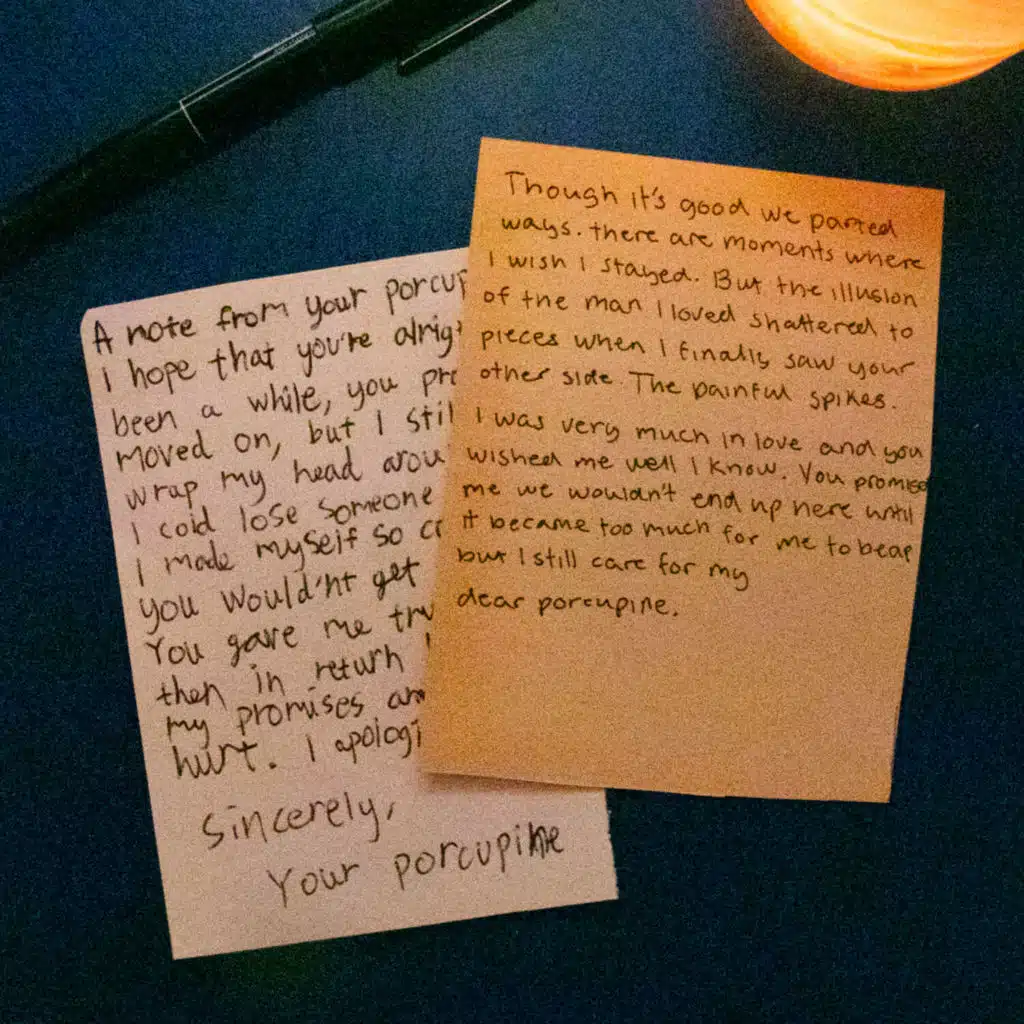 A note from your porcup
I hope that you're alrig
been a while, you pr
moved on, but I stil
wrap my head arou
I cold lose someone
I made myself so cr
you would'nt get
You gave me tr
then in return
my promises an
hurt. I apologi
Sincerely,
Your porcupine
Though it's good we parted
ways. there are moments where
I wish I stayed. But the illusion
of the man I loved shattered to
pieces when I finally saw your
other side. The painful spikes.
I was very much in love and you
wished me well I know. You promise
me we wouldn't end up here until
it became too much for me to bear
but I still care for my
dear porcupine.